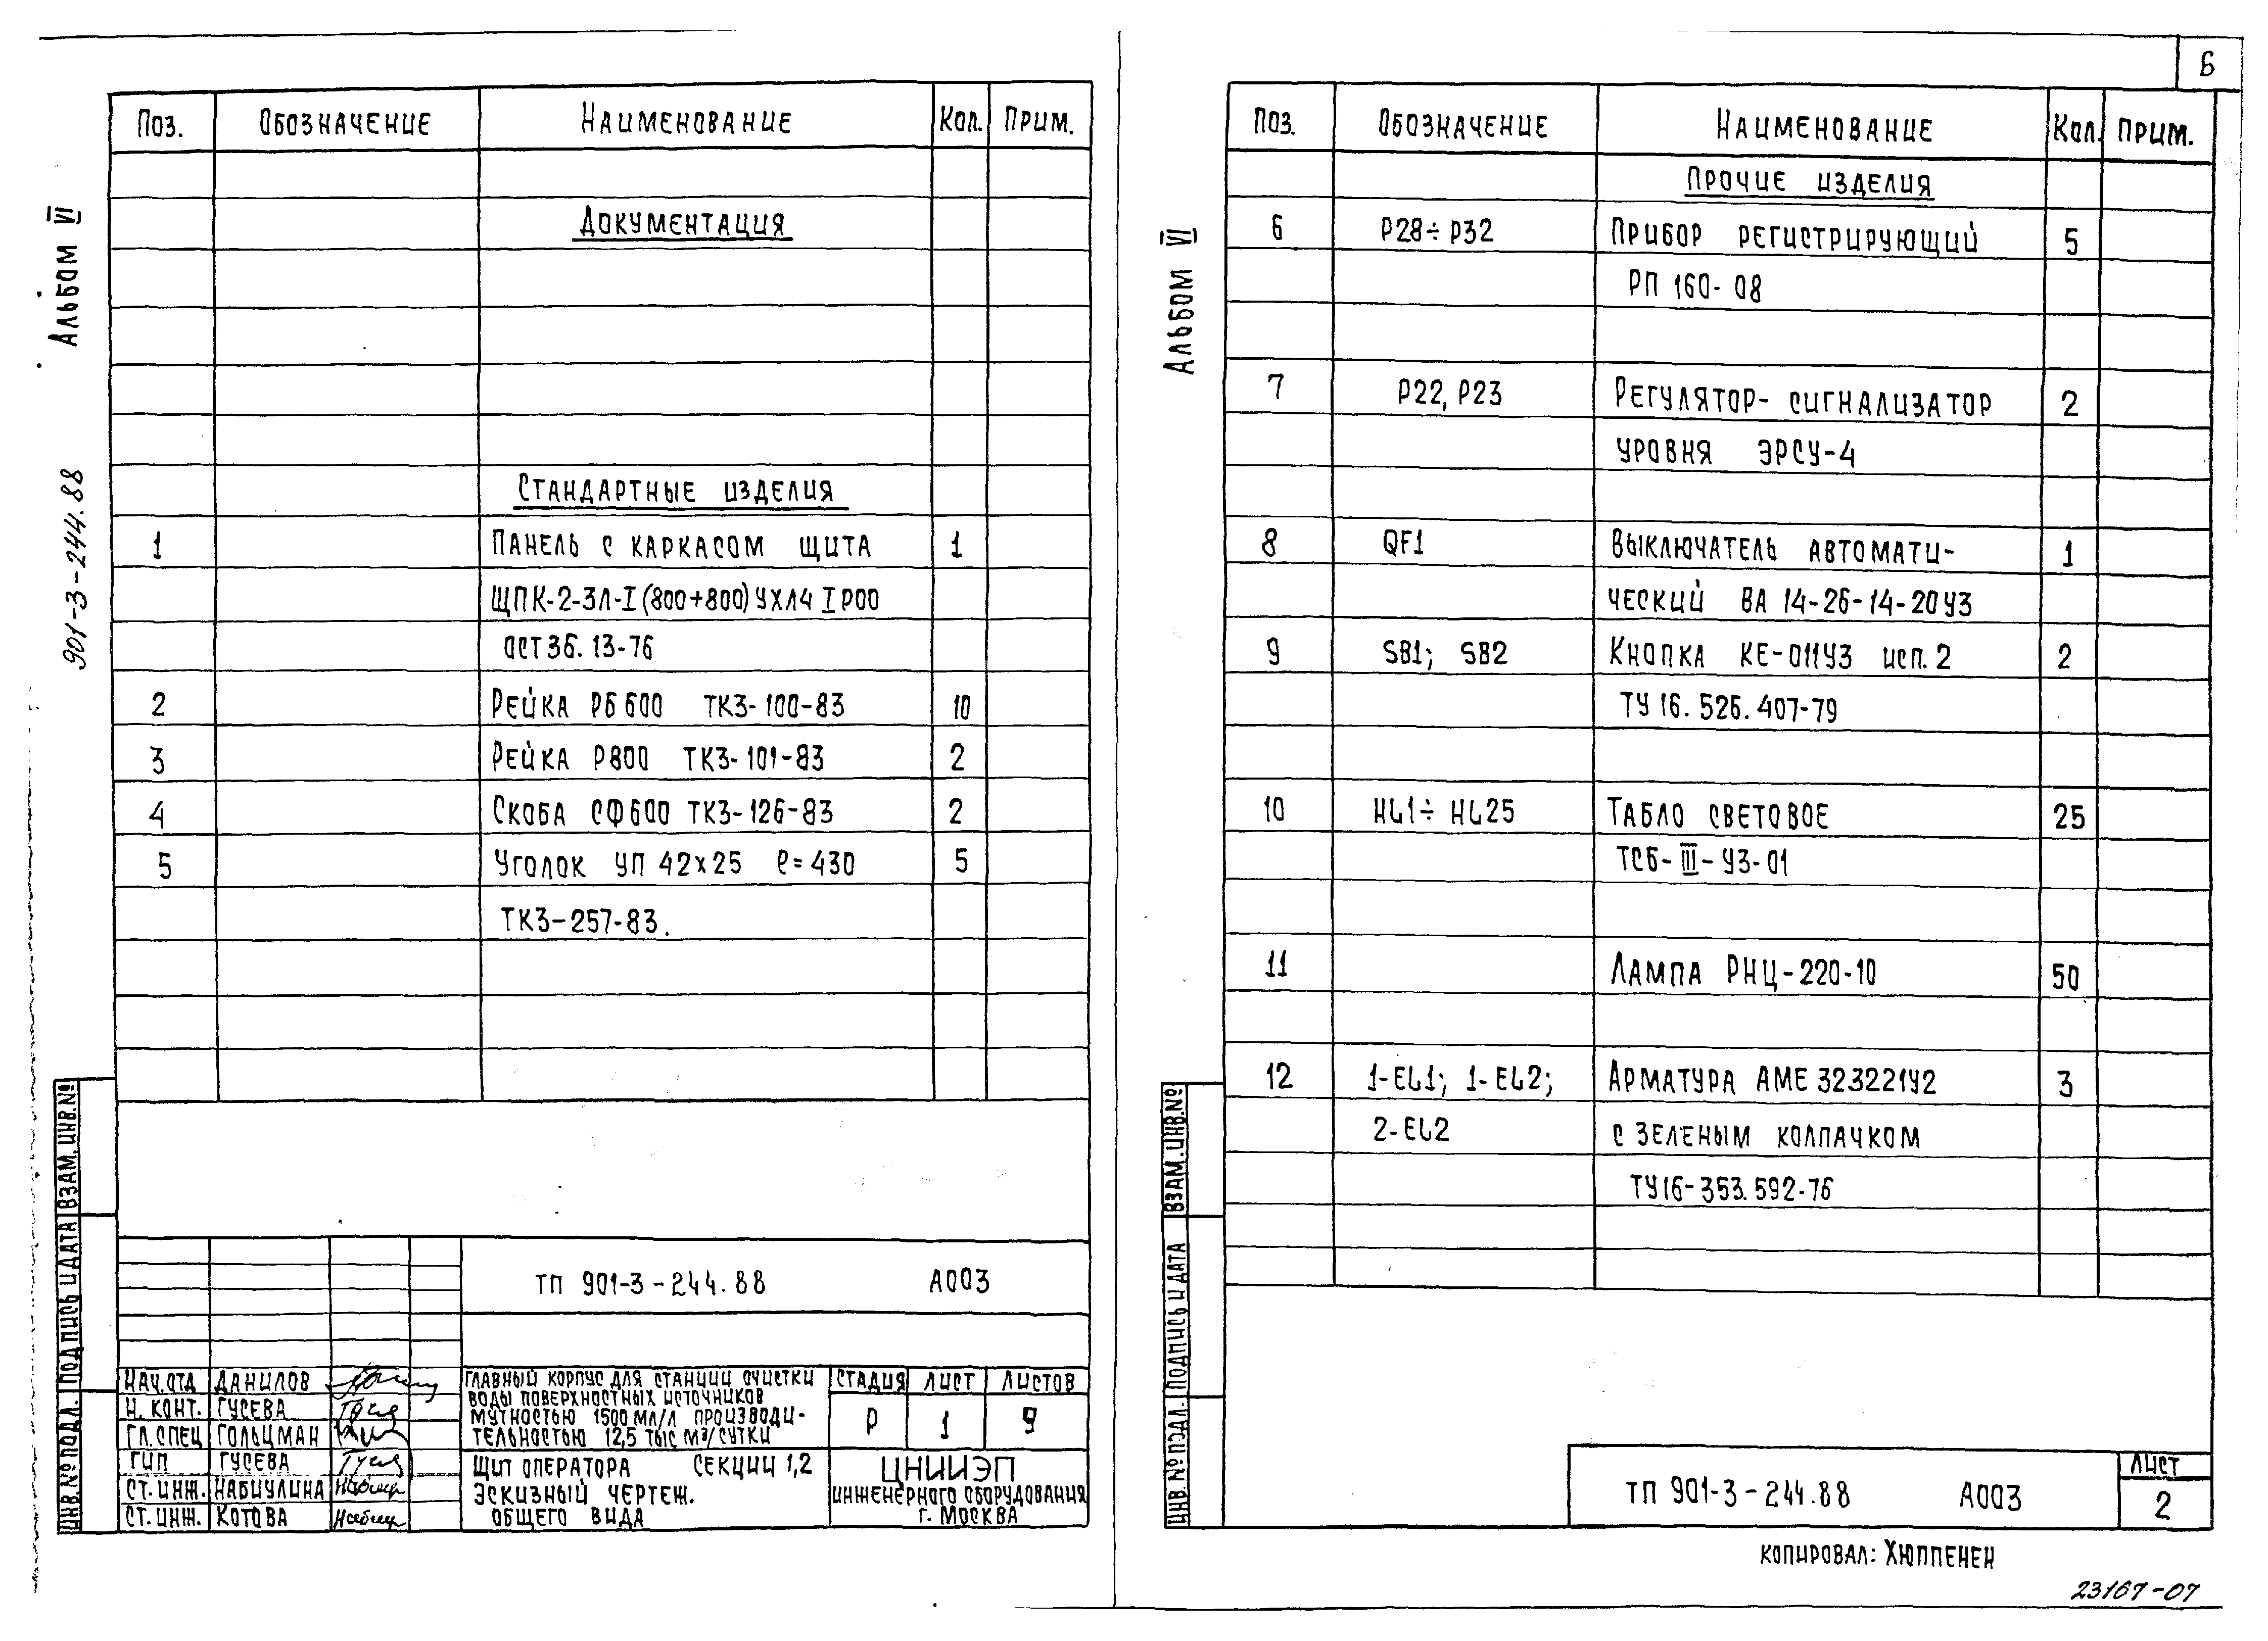 6
Альбом VI
901-3-244.88
Поз. Обозначение Наименование Кол. Прим.
Документация
Стандартные изделия
1 Панель с каркасом щита 1
ЩПК-2-3Л-I (800+800) УХЛ4 IР00
ОСТ 36.13-76
2 Рейка РБ600 ТК3-100-83 10
3 Рейка Р800 ТК3-101-83 2
4 Скоба СФ600 ТК3-126-83 2
5 Уголок УП 42х25 ℓ=430 5
ТК3-257-83.
ВЗАМ. ИНВ.№
ПОДПИСЬ И ДАТА
ИНВ.№ ПОДЛ.
ТП 901-3-244.88 А003
НАЧ.ОТД ДАНИЛОВ
Н. КОНТ. ГУСЕВА
ГЛ.СПЕЦ ГОЛЬЦМАН
ГИП ГУСЕВА
СТ.ИНЖ. НАБИУЛИНА
СТ.ИНЖ. КОТОВА
ГЛАВНЫЙ КОРПУС ДЛЯ СТАНЦИИ ОЧИСТКИ
ВОДЫ ПОВЕРХНОСТНЫХ ИСТОЧНИКОВ
МУТНОСТЬЮ 1500 МЛ/Л ПРОИЗВОДИ-
ТЕЛЬНОСТЬЮ 12,5 ТЫС М³/СУТКИ
СТАДИЯ ЛИСТ ЛИСТОВ
Р 1 9
ЩИТ ОПЕРАТОРА СЕКЦИИ 1,2
ЭСКИЗНЫЙ ЧЕРТЕЖ.
ОБЩЕГО ВИДА
ЦНИИЭП
ИНЖЕНЕРНОГО ОБОРУДОВАНИЯ
Г. МОСКВА
Альбом VI
Поз. Обозначение Наименование Кол. Прим.
Прочие изделия
6 Р28÷Р32 Прибор регистрирующий 5
РП 160-08
7 Р22, Р23 Регулятор-сигнализатор 2
уровня ЭРСУ-4
8 QF1 Выключатель автомати- 1
ческий ВА 14-26-14-20У3
9 SB1; SB2 Кнопка КЕ-011У3 исп. 2 2
ТУ 16.526.407-79
10 HL1÷HL25 Табло световое 25
ТСБ-III-У3-01
11 Лампа РНЦ-220-10 50
12 1-EL1; 1-EL2; Арматура АМЕ 323221У2 3
2-EL2 с зеленым колпачком
ТУ16-353.592-76
ВЗАМ.ИНВ.№
ПОДПИСЬ И ДАТА
ИНВ.№ ПОДЛ.
ТП 901-3-244.88 А003
ЛИСТ
2
КОПИРОВАЛ: ХЮППЕНЕН
23167-07